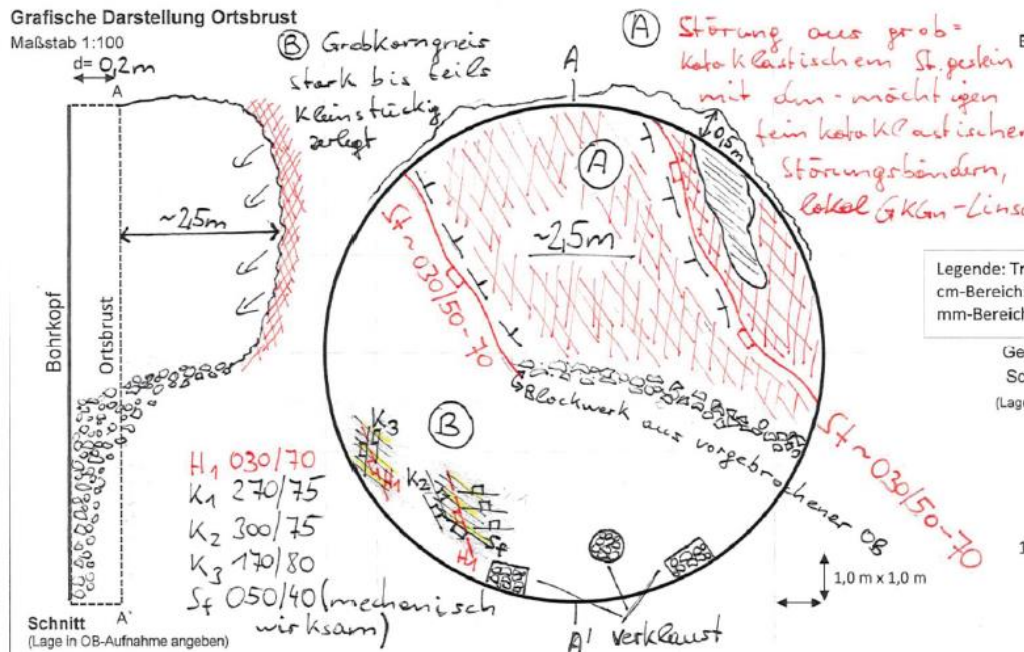 Grafische Darstellung Ortsbrust
Maßstab 1:100
d= 0,2m
A
Bohrkopf
Ortsbrust
~2,5m
A'
Schnitt
(Lage in OB-Aufnahme angeben)
B Grobkorngneis
stark bis teils
kleinstückig
zerlegt
A Störung aus grob=
kataklastischem St.gestein
mit dm-mächtigen
feinkataklastischen
Störungsbändern,
lokal GKGn-Lins
A
0,5m
A
~2,5m
St~030/50-70
Blockwerk aus vorgebrochener OB
St~030/50-70
B
K3
H1
K2
Sf
H1
H1 030/70
K1 270/75
K2 300/75
K3 170/80
Sf 050/40 (mechanisch
wirksam)
A' verklaust
1,0 m x 1,0 m
Legende: Tr
cm-Bereich:
mm-Bereich
Ge
Sc
(Lage
1